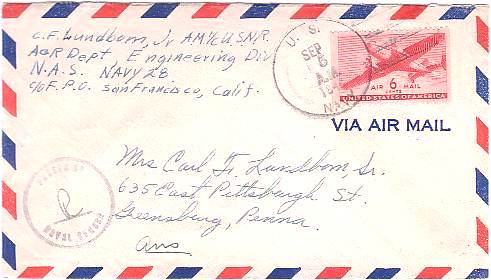 C.F. Lundbom, Jr AMM1c U.S.N.R.
A&R Dept Engineering Div
N.A.S. NAVY 28
c/o F.P.O. San Francisco, Calif.
U. S.
SEP
6
A.M.
NAVY
AIR 6 MAIL
CENTS
UNITED STATES OF AMERICA
VIA AIR MAIL
Mrs Carl F. Lundbom, Sr.
635 East Pittsburgh St.
Greensburg, Penna.
PASSED BY
NAVAL CENSOR